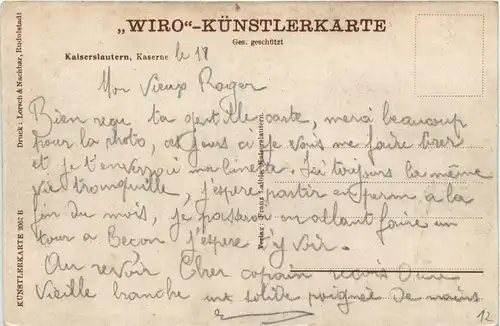 „WIRO“-KÜNSTLERKARTE
Ges. geschützt
Kaiserslautern, Kaserne le 18
Mon Vieux Roger
Bien reçu ta gentille carte, merci beaucoup
pour la photo, ces jours ci je vais me faire tirer
et je t'enverrai ma binette. Ici toujours la même
vie tranquille, j'espère partir en perm à la
fin du mois, je passerai en allant faire un
tour a Becon j'espère t'y voir.
Au revoir Cher copain
vieille branche une solide poignée de mains
12
Druck: Lorsch & Nachbar, Rudolstadt
KÜNSTLERKARTE 3057 B
Verlag: Franz Kaiserslautern.